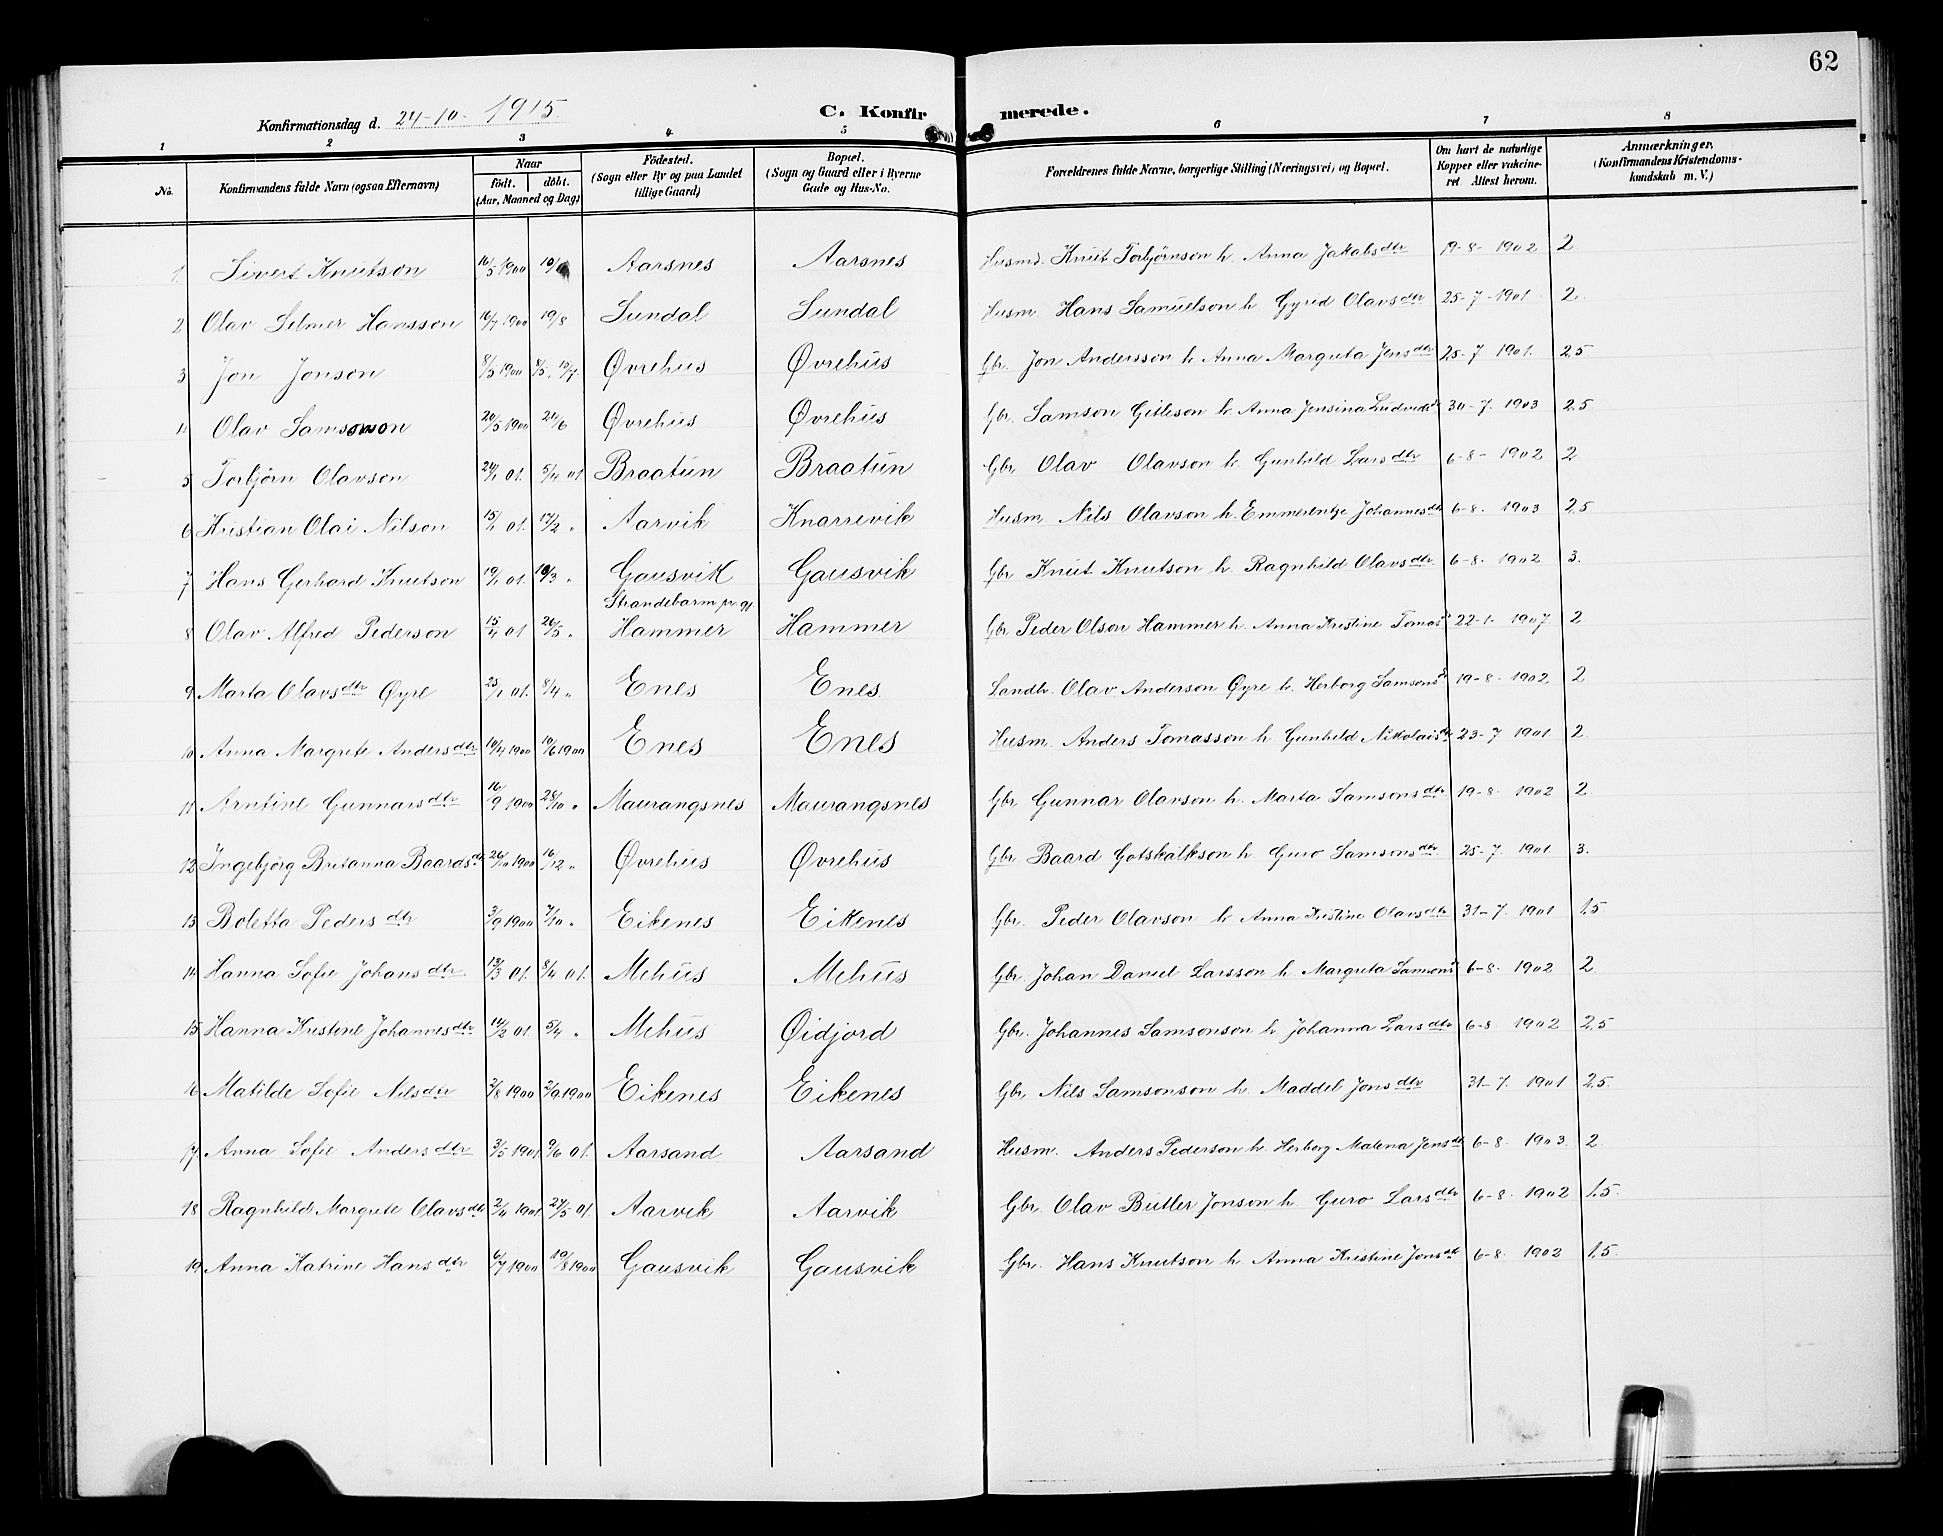 62
Konfirmationsdag d. 24-10- 1915.
C. Konfirmerede.
1 2 3 4 5 6 7 8
No. Konfirmandens fulde Navn (ogsaa Efternavn) Naar födt. döbt. (Aar, Maaned og Dag) Födested. (Sogn eller By og paa Landet tillige Gaard) Bopæl. (Sogn og Gaard eller i Byerne Gade og Hus-No. Forældrenes fulde Navne, borgerlige Stilling (Næringsvei) og Bopæl. Om havt de naturlige Kopper eller vakcineret Attest herom. Anmærkninger, (Konfirmandens Kristendomskundskab m. V.)
1 Sivert Knutson 16/5 1900 Aarsnes Aarsnes Husmd. Knut Torbjörnson h. Anna Jakobsdtr 19-8- 1902 2
2 Olav Selmer Hansson 16/7 1900 19/8 Sundal Sundal Husm. Hans Samuelson h Gyrid Olavsdtr 25-7-1901 2
3 Jon Jonson 8/5 1900 8/5, 15/7. Øvrehus Øvrehus Gbr. Jon Andersson h. Anna Margreta Jensdtr 25-7 1901. 2,5
4 Olav Samsonson 20/5 1900 24/6 Øvrehus Øvrehus Gbr. Samson Gitleson h. Anna Jensina Ludvikd 30-7. 1903 2,5
5 Torbjörn Olavson 24/1 01. 5/4 01 Braatun Braatun Gbr Olav Olavson h. Gunhild Larsdtr 6-8- 1902 2
6 Kristian Olai Nilson 15/1 01. 17/2 „ Aarvik Knarrevik Husm. Nils Olavson h. Emmerentse Johannesdtr 6-8. 1903 2,5
7 Hans Gerhard Knutson 19/1 01. 10/3 „ Gausvik Gausvik Gbr Knut Knutson h. Ragnhild Olavsdtr 6-8. 1902 3.
Strandebarm pr.gj.
8 Olav Alfred Pederson 15/4 01 26/5 „ Hammer Hammer Gbr Peder Olson Hammer h. Anna Kristine Tomasd 22-1. 1907 2
9 Marta Olavsdtr Øyre 25/1 01. 8/4 „ Enes Enes Landh. Olav Anderson Øyre h. Herborg Samsonsd 19-8. 1902 2
10 Anna Margrete Andersdtr 19/4 1900 10/6 1900 Enes Enes Husm. Anders Tomasson h. Gunhild Nikolaisdtr 23-7 1901 2
11 Arntine Gunnarsdtr 16/9 1900 28/10 „ Maurangsnes Maurangsnes Gbr Gunnar Olavson h. Marta Samsonsdtr 19-8. 1902 2
12 Ingebjörg Britanna Baardsdtr 26/10 1900 16/12 „ Øvrehus Øvrehus Gbr Baard Gotskalkson h. Guro Samsonsdtr 25-7. 1901. 3.
13 Boletta Pedersdtr 3/9 1900 7/10 „ Eikenes Eikenes Gbr. Peder Olavson h Anna Kristine Olavsdtr 31-7. 1901 1,5
14 Hanna Sofie Johansdtr 13/3 01. 8/4 01. Mehus Mehus Gbr Johan Daniel Larsson h. Margreta Samsonsd 6-8. 1902 2
15 Hanna Kristine Johannesdtr 14/2 01. 5/4 „ Mehus Øidjord Gbr. Johannes Samsonson h Johanna Larsdtr 6-8. 1902 2,5
16 Matilde Sofie Nilsdtr 2/8 1900 2/9 1900 Eikenes Eikenes Gbr. Nils Samsonson h. Maddel Jonsdtr 31-7. 1901 2,5.
17 Anna Sofie Andersdtr 3/5 1901 9/6 01. Aarsand Aarsand Husm. Anders Pederson h. Herborg Malena Jensdtr 6-8. 1903. 2.
18 Ragnhild Margrete Olavsdtr 2/4 1901. 27/5 01. Aarvik Aarvik Gbr. Olav Butler Jonson h Guro Larsdtr 6-8. 1902 1,5.
19 Anna Katrine Hansdtr 6/7 1900 19/8 1900 Gausvik Gausvik Gbr. Hans Knutson h. Anna Kristine Jonsdtr 6-8. 1902 1,5